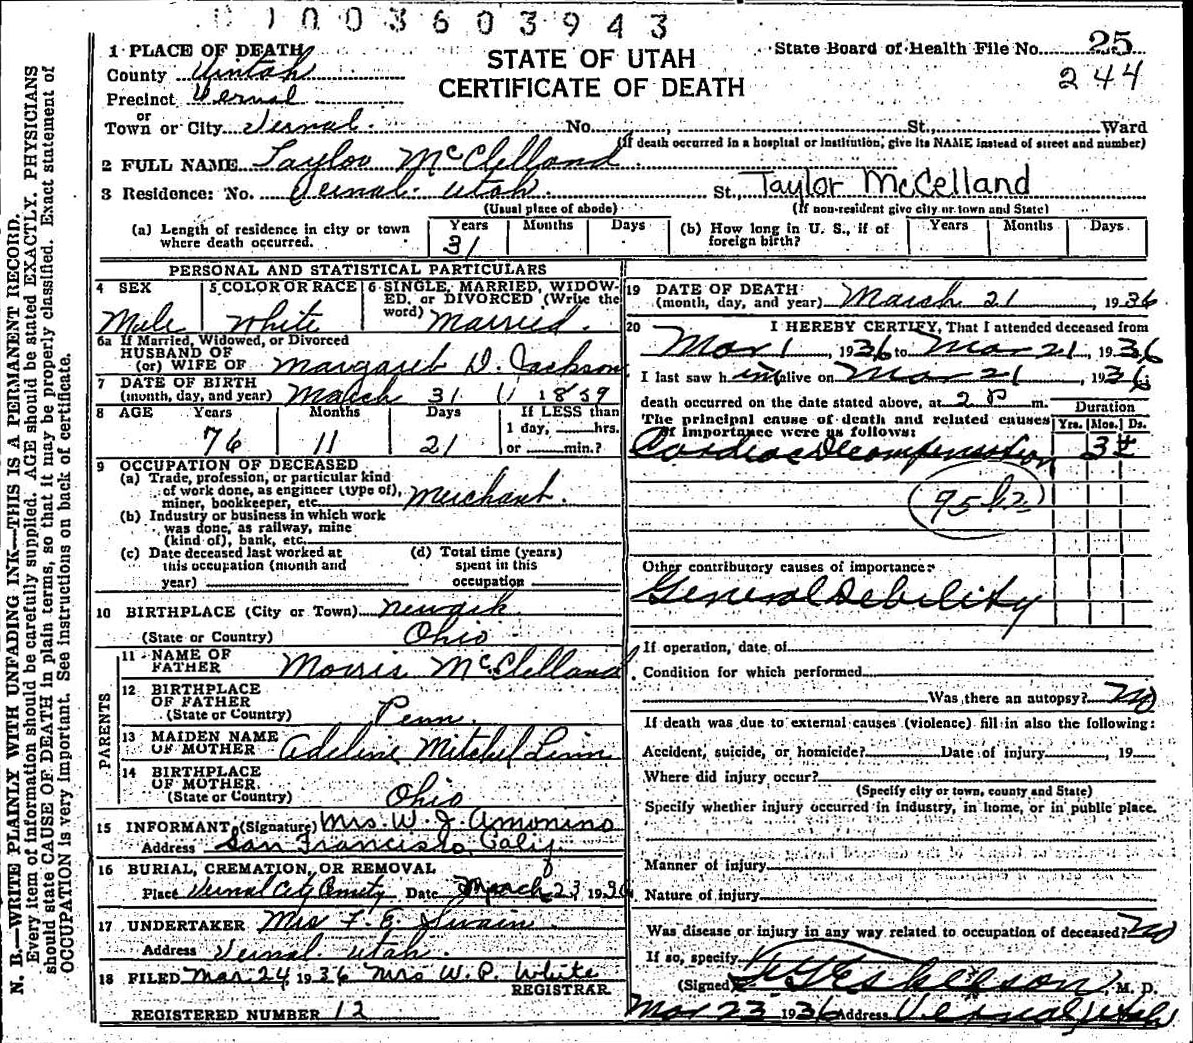 1003603943
1 PLACE OF DEATH
County Uintah
Precinct Vernal
or
Town or City Vernal. No. , St., Ward
(If death occurred in a hospital or institution, give its NAME instead of street and number)
STATE OF UTAH
CERTIFICATE OF DEATH
State Board of Health File No. 25
244
2 FULL NAME Taylor McClelland
3 Residence: No. Vernal Utah. St., Taylor McCelland
(Usual place of abode) (If non-resident give city or town and State)
(a) Length of residence in city or town where death occurred. Years 31 Months Days
(b) How long in U. S., if of foreign birth? Years Months Days
PERSONAL AND STATISTICAL PARTICULARS
4 SEX Male
5 COLOR OR RACE White
6 SINGLE, MARRIED, WIDOW-
ED, or DIVORCED (Write the
word) Married.
6a If Married, Widowed, or Divorced
HUSBAND OF
(or) WIFE OF Margaret D. Jackson
7 DATE OF BIRTH
(month, day, and year) March 31 1859
8 AGE Years 76 Months 11 Days 21
If LESS than
1 day, hrs.
or min.?
9 OCCUPATION OF DECEASED
(a) Trade, profession, or particular kind
of work done, as engineer (type of),
miner, bookkeeper, etc. Merchant.
(b) Industry or business in which work
was done, as railway, mine
(kind of), bank, etc.
(c) Date deceased last worked at
this occupation (month and
year)
(d) Total time (years)
spent in this
occupation
10 BIRTHPLACE (City or Town) Newark
(State or Country) Ohio
PARENTS
11 NAME OF
FATHER Morris McClelland
12 BIRTHPLACE
OF FATHER
(State or Country) Penn.
13 MAIDEN NAME
OF MOTHER Adeline Mitchel Linn
14 BIRTHPLACE
OF MOTHER
(State or Country) Ohio
15 INFORMANT (Signature) Mrs. W. J.
Address San Francisco, Calif
16 BURIAL, CREMATION, OR REMOVAL
Place Vernal City Date March 23 1936
17 UNDERTAKER Mrs F. E. Swain.
Address Vernal Utah.
18 FILED Mar 24 1936 Mrs W. P. White
REGISTRAR
REGISTERED NUMBER 12
19 DATE OF DEATH
(month, day, and year) March 21, 1936
20 I HEREBY CERTIFY, That I attended deceased from
Mar 1, 1936 to Mar 21, 1936
I last saw him alive on Mar 21, 1936
death occurred on the date stated above, at 2 P m.
The principal cause of death and related causes
of importance were as follows:
Duration
Yrs. Mos. Ds.
Cardiac Decompensation 3
95
Other contributory causes of importance:
General Debility
If operation, date of
Condition for which performed
Was there an autopsy? No
If death was due to external causes (violence) fill in also the following:
Accident, suicide, or homicide? Date of injury , 19
Where did injury occur?
(Specify city or town, county and State)
Specify whether injury occurred in industry, in home, or in public place.
Manner of injury
Nature of injury
Was disease or injury in any way related to occupation of deceased? No
If so, specify
(Signed) M. D.
Mar 23 1936 Address Vernal Utah
N. B.—WRITE PLAINLY WITH UNFADING INK—THIS IS A PERMANENT RECORD.
Every item of information should be carefully supplied. AGE should be stated EXACTLY. PHYSICIANS
should state CAUSE OF DEATH in plain terms, so that it may be properly classified. Exact statement of
OCCUPATION is very important. See instructions on back of certificate.